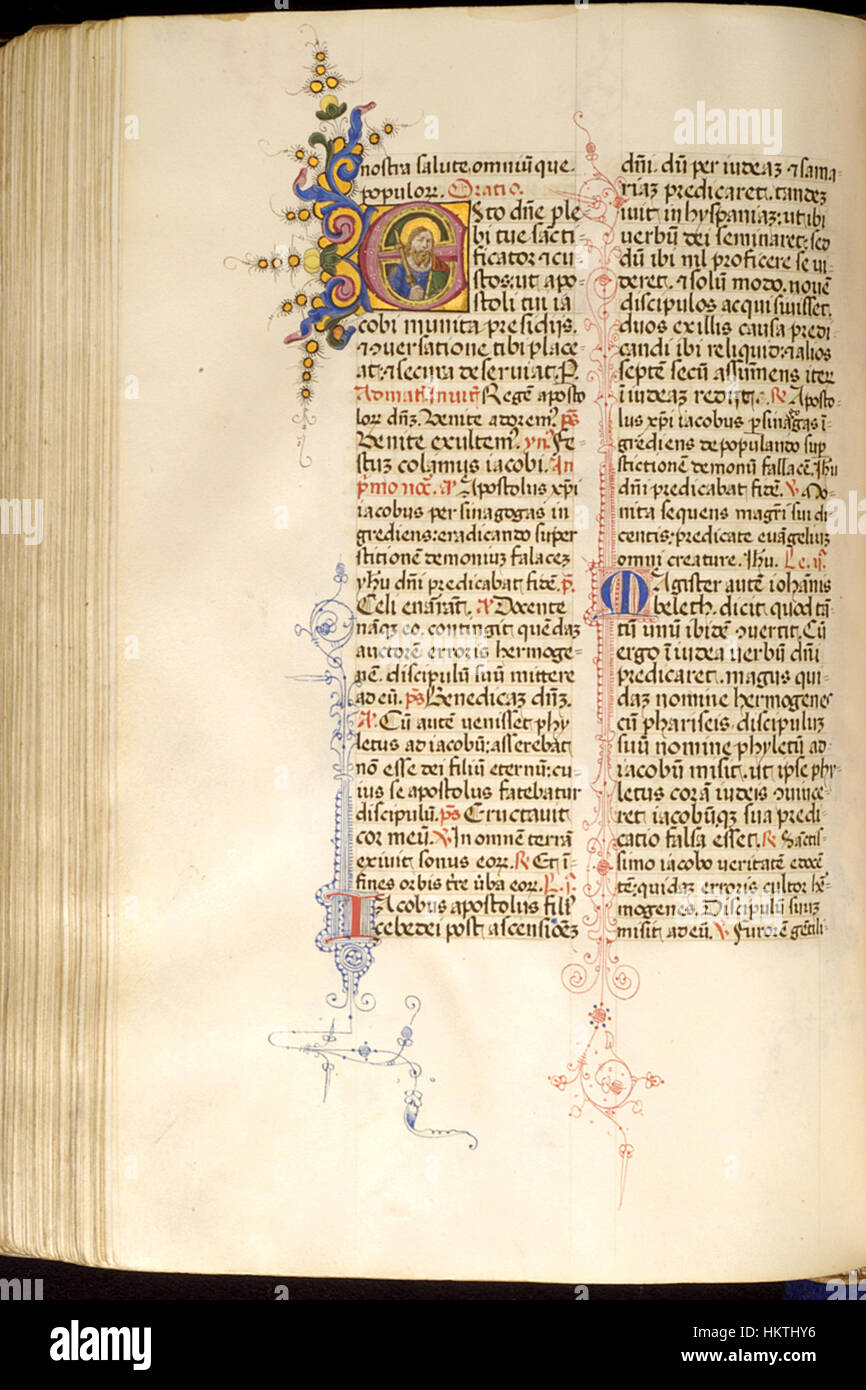 nostra salute, omniū que
populoꝝ. Oratio.
Esto dn̄e ple
bi tue sācti
ficator ⁊ cu
stos: ut apo
stoli tui ia
cobi munita presidijs.
⁊ ꝯuersatione tibi place
at: ⁊ secura deseruiat. P.
Ad mat̄. Inuit̄. Regē aposto
loꝝ dn̄ꝫ. Venite adorem⁹. ps̄
Venite exultem⁹. yn̄⁹. Fe
stuꝫ colamus iacobi. In
p̊mo noc̄t. Añ Apostolus xp̄i
iacobus per sinagogas in
grediens: eradicando super
stitionē demoniuꝫ falaceꝫ
yh̄u dn̄i predicabat fidē. p̄.
Celi enarāt. Añ Docente
nāqꝫ eo. contingit quēdaꝫ
auctorē erroris hermoge
nē. discipulū suū mittere
ad eū. ps̄ Benedicaꝫ dn̄ꝫ.
Añ. Cū autē venisset phy
letus ad iacobū: asserebat
nō esse dei filiū eternū: cu
ius se apostolus fatebatur
discipulū. ps̄ Eructauit
cor meū. ℣ In omnē terrā
exiuit sonus eoꝝ. ℟ Et ī
fines orbis tr̄e v̄ba eoꝝ. L. ī.
Iacobus apostolus fili⁹
cebedei post ascensionēꝫ
dn̄i. dū per iudeaꝫ ⁊ sama
riaꝫ predicaret. tandeꝫ
iuit in hyspaniaꝫ: ut ibi
uerbū dei seminaret: sed
dū ibi nil proficere se ui
deret. ⁊ solū modo. nouē
discipulos acquisiuisset.
duos ex illis causa predi
candi ibi reliquid: ⁊ alios
septē secū assumens iter
ī iudeaꝫ redijt. ℟ Aposto
lus xp̄i iacobus p̱ sinagogas ī
grediens depopulando sup̱
stictionē demonū fallacē. Ih̄u
dn̄i predicabat fidē. ℣ Mo
nita sequens magr̄i sui di
centis: predicate euāgeliuꝫ
omni creature. Ih̄u. Le. ij.
Magister autē iohānis
beleth. dicit quod tā
tū unū ibidē ꝯuertit. Cū
ergo ī iudea uerbū dn̄i
predicaret. magus qui
daꝫ nomine hermogenes
cū phariseis discipuluꝫ
suū nomine phyletū ad
iacobū misit. ut ipse phy
letus corā iudeis ꝯuince
ret iacobūqꝫ sua predi
catio falsa esset. ℟ Sāctis
simo iacobo ueritatē edocē
tē: quidaꝫ erroris cultor her̄
mogenes. Discipulū suuꝫ
misit ad eū. ℣ Furorē gētili
alamy
a
Image ID: HKTHY6
www.alamy.com